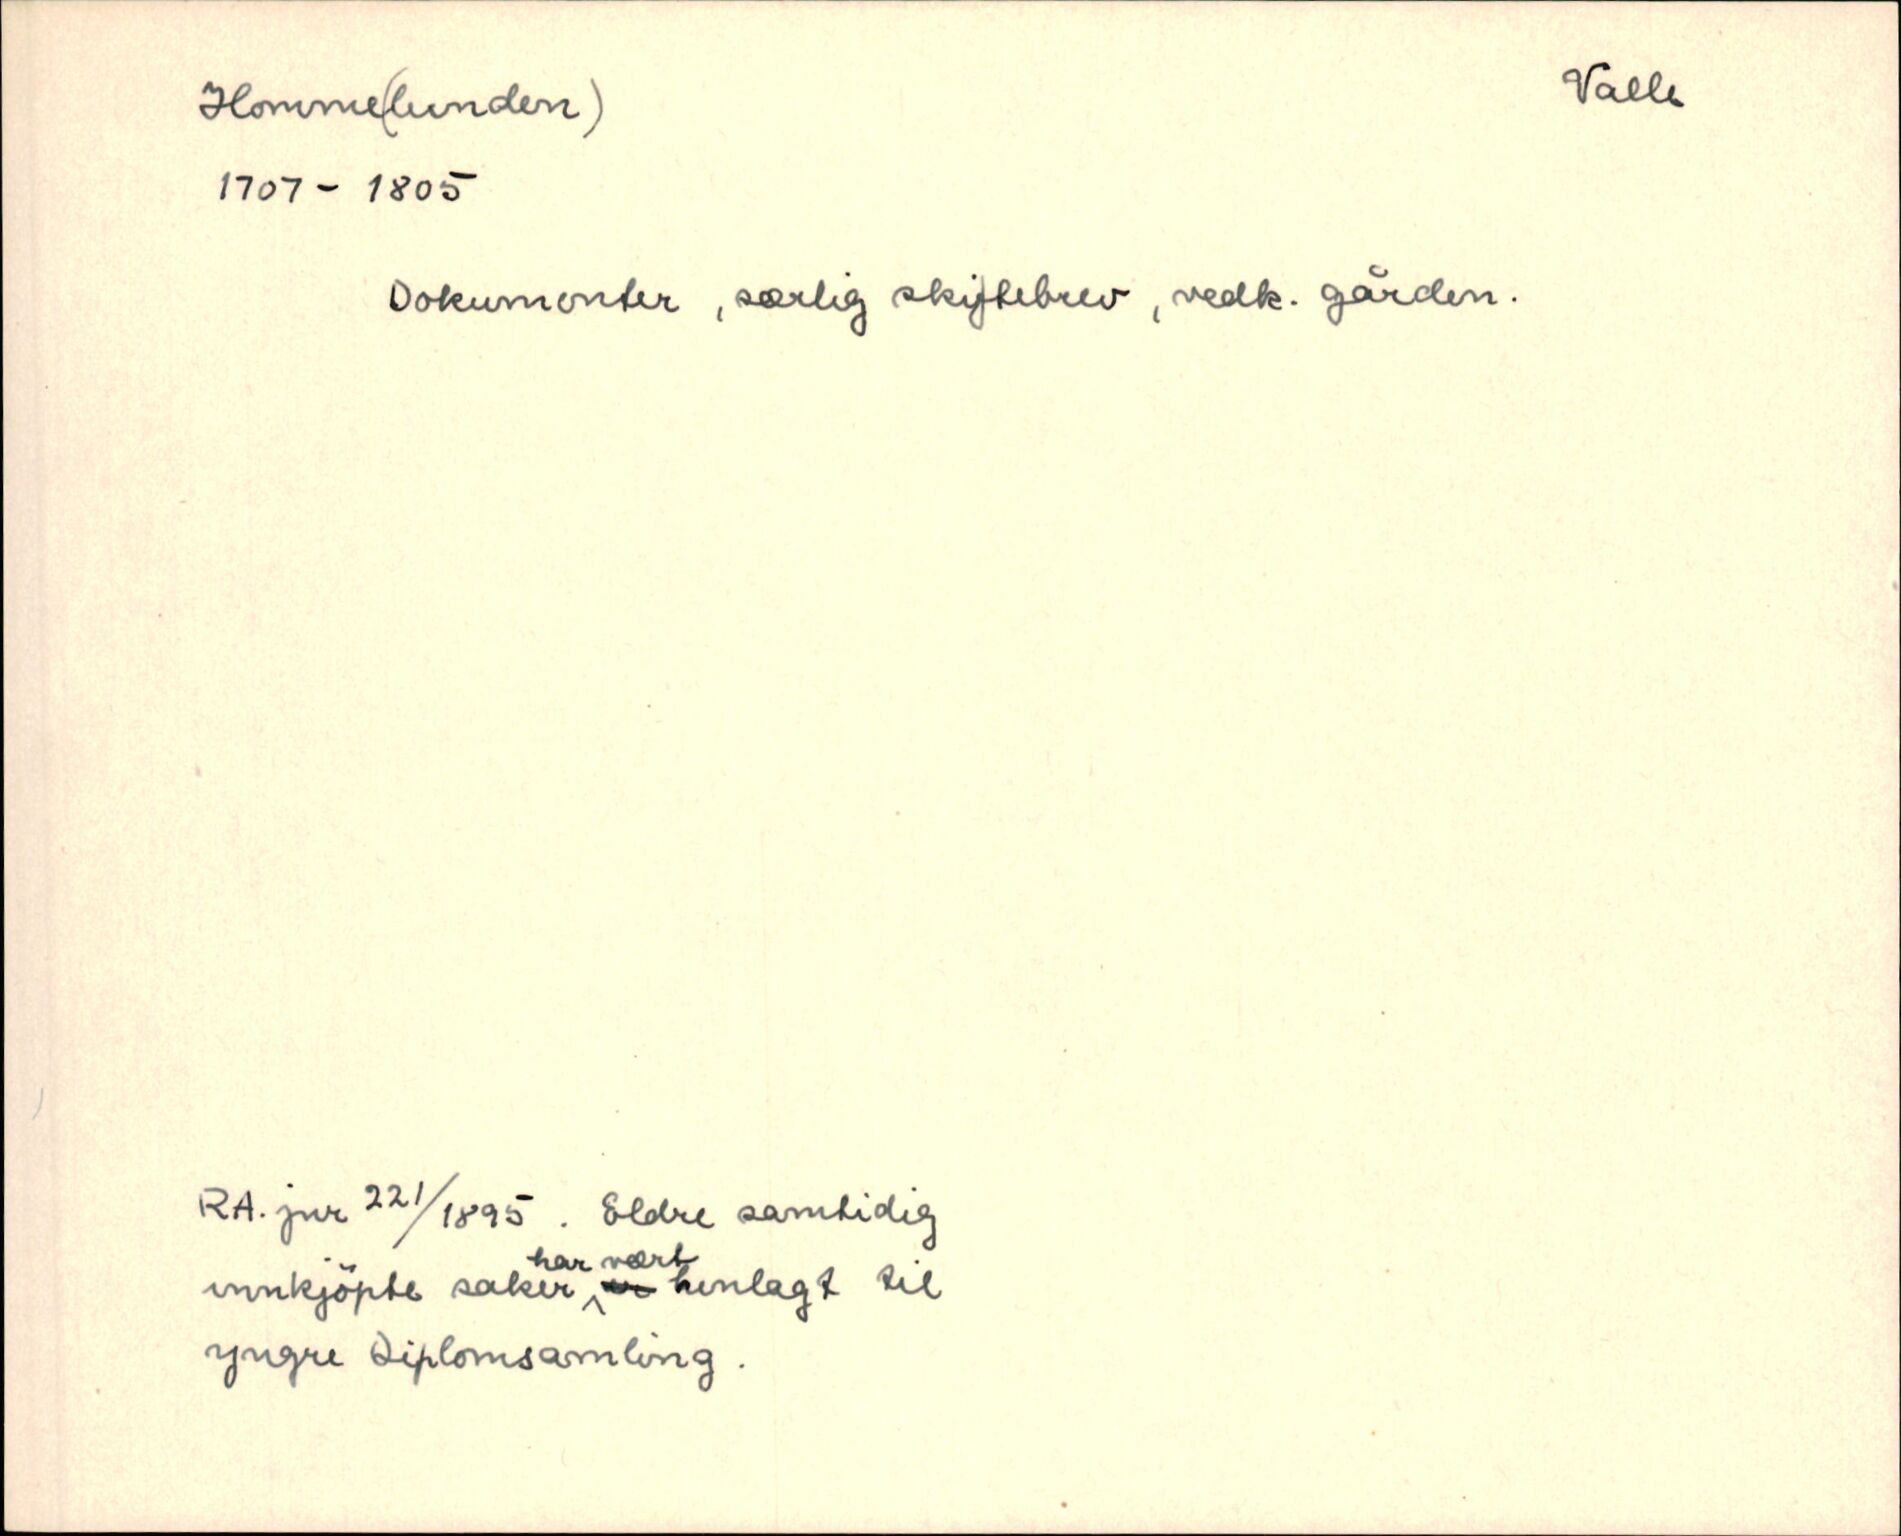 Homme(lunden) Valle
1707 - 1805
Dokumenter, særlig skiftebrev, vedk. gården.
RA. jnr 221/1895. Eldre samtidig
innkjöpte saker har vært henlagt til
yngre Diplomsamling.